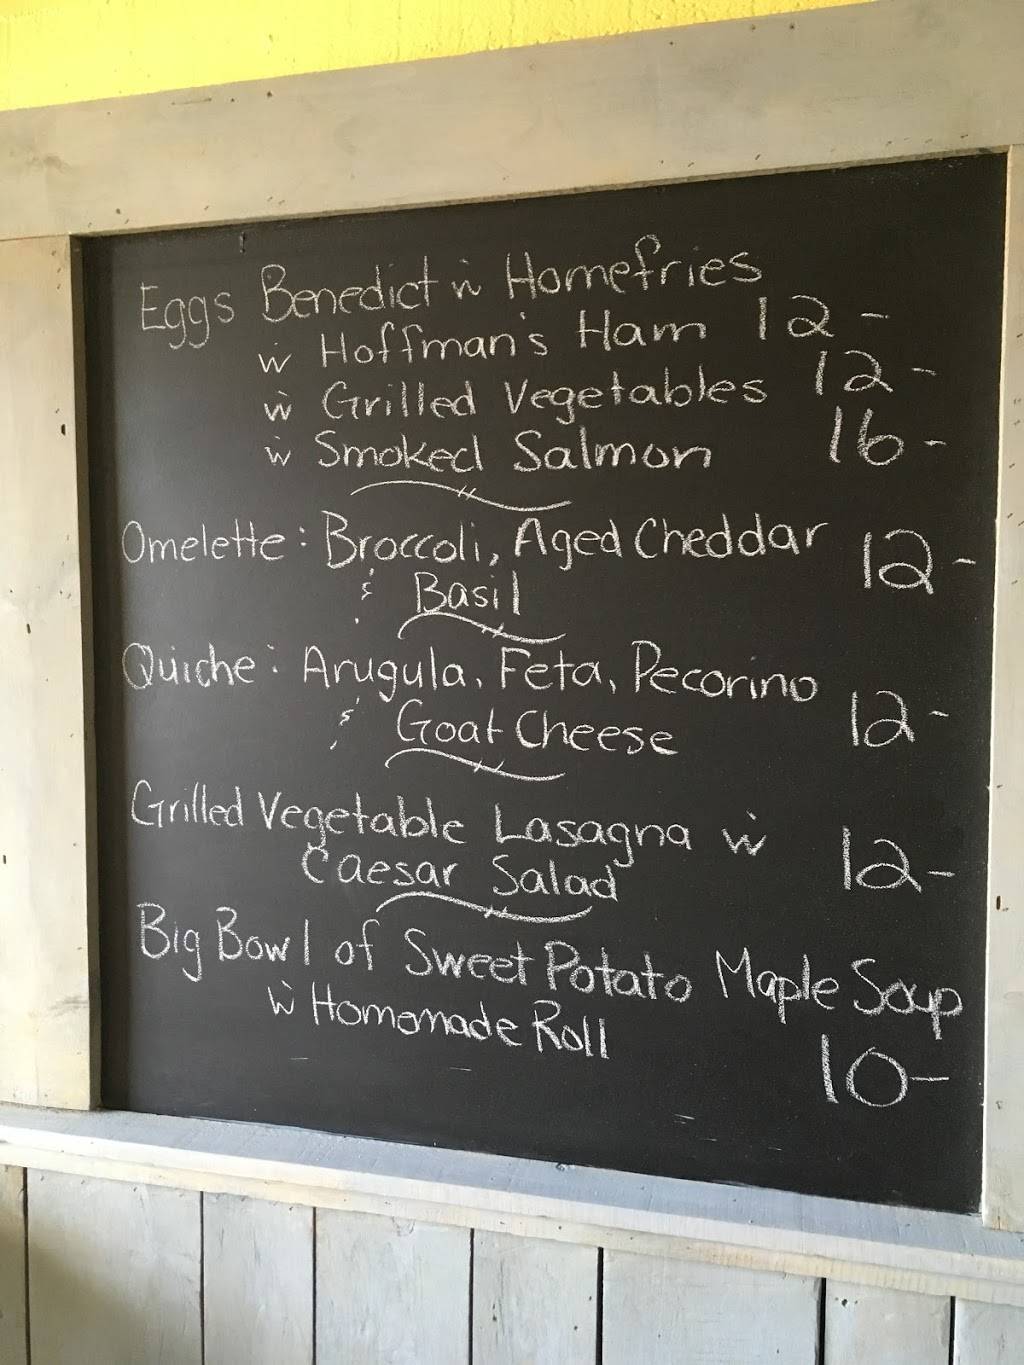 Eggs Benedict w Homefries
w Hoffman's Ham 12-
w Grilled Vegetables 12-
w Smoked Salmon 16-
Omelette: Broccoli, Aged Cheddar 12-
& Basil
Quiche: Arugula, Feta, Pecorino 12-
& Goat Cheese
Grilled Vegetable Lasagna w 12-
Caesar Salad
Big Bowl of Sweet Potato Maple Soup
w Homemade Roll 10-